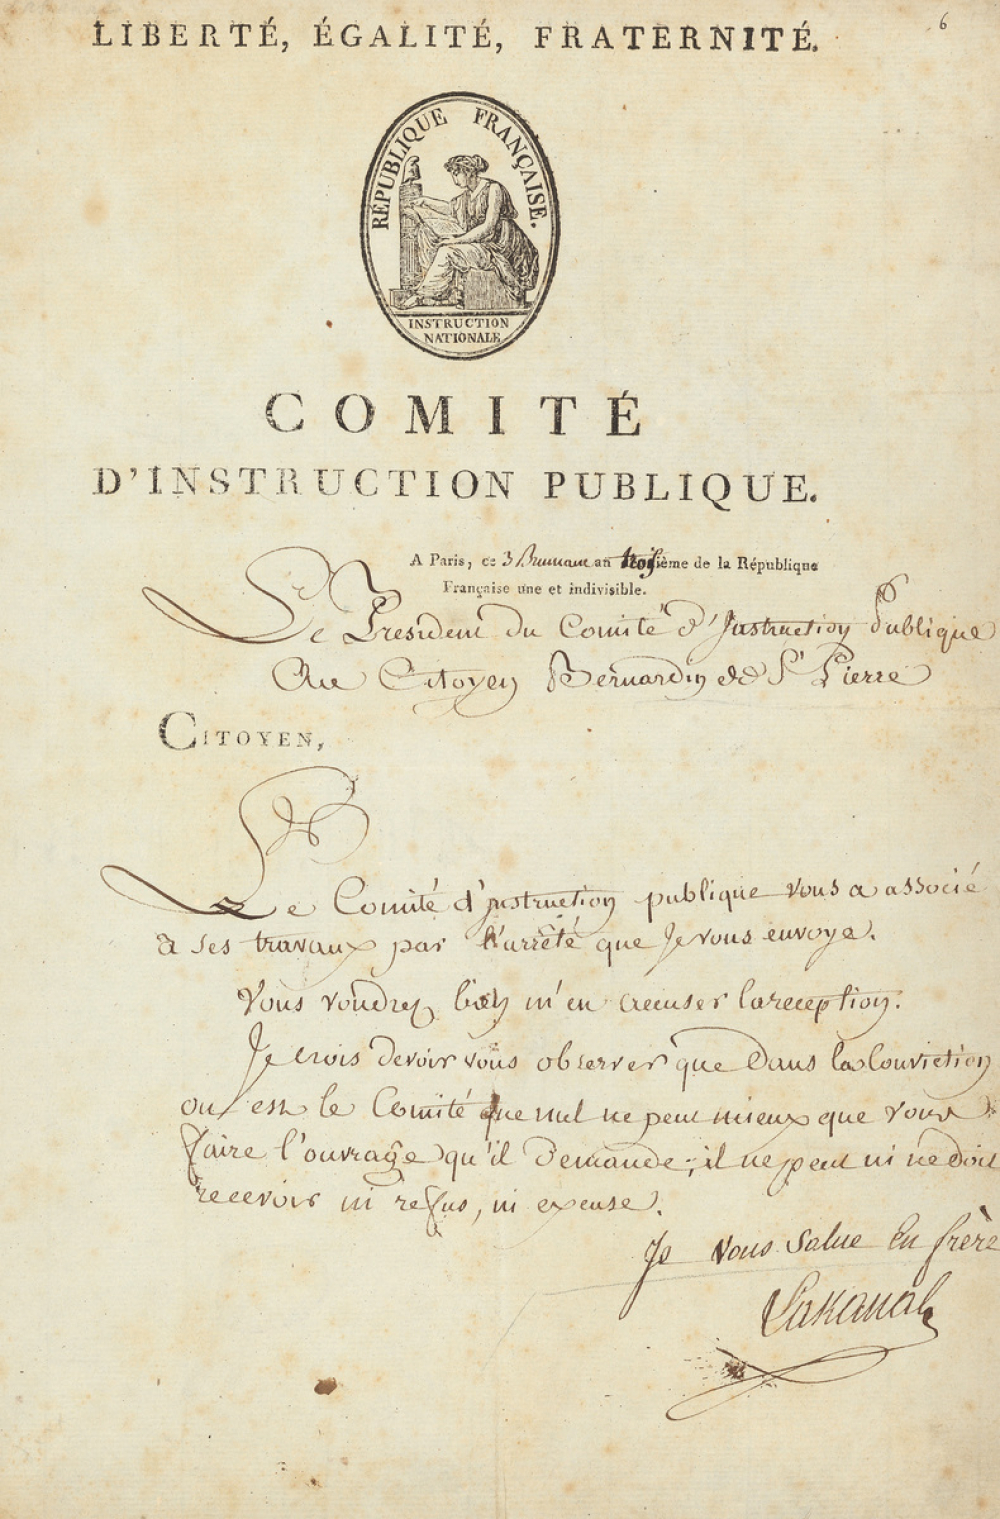 6
LIBERTÉ, ÉGALITÉ, FRATERNITÉ.
RÉPUBLIQUE FRANÇAISE.
INSTRUCTION
NATIONALE
COMITÉ
D'INSTRUCTION PUBLIQUE.
A Paris, ce 3 Brumaire an troisième de la République
Française une et indivisible.
Le President du Comité d'Instruction Publique
Au Citoyen Bernardin de St Pierre
CITOYEN,
Le Comité d'instruction publique vous a associé
a ses travaux par l'arrêté que Je vous envoye.
Vous voudrez bien m'en accuser la reception.
Je crois devoir vous observer que dans la Conviction
ou est le Comité que nul ne peut mieux que vous
faire l'ouvrage qu'il demande, il ne peut ni ne doit
recevoir ni refus, ni excuse.
Je vous salue En frère
Lakanal